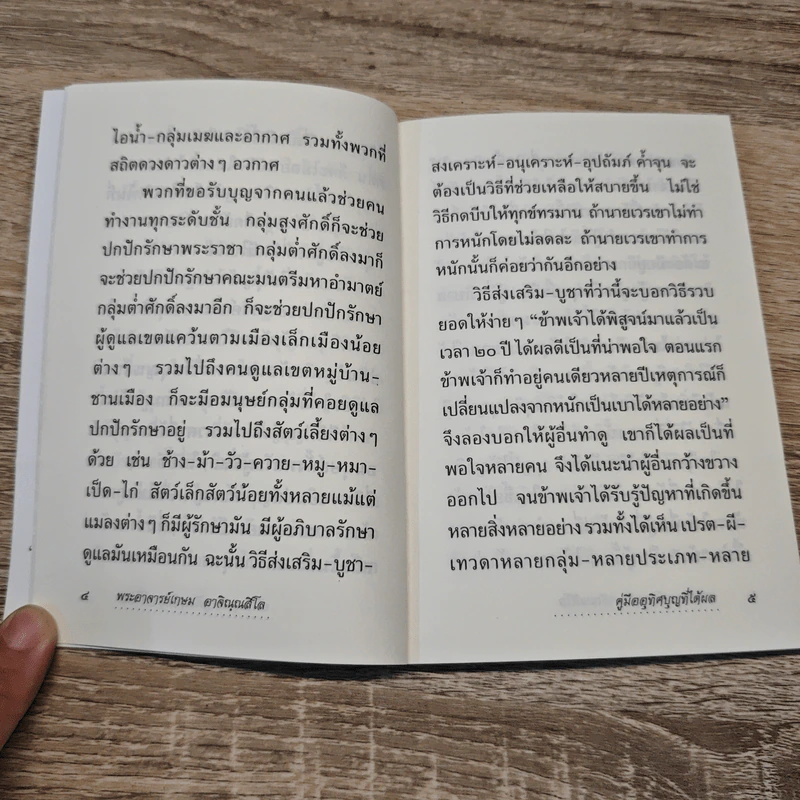 ไอน้ำ-กลุ่มเมฆและอากาศ รวมทั้งพวกที่
สถิตดวงดาวต่างๆ อวกาศ
พวกที่ขอรับบุญจากคนแล้วช่วยคน
ทำงานทุกระดับชั้น กลุ่มสูงศักดิ์ก็จะช่วย
ปกปักรักษาพระราชา กลุ่มต่ำศักดิ์ลงมาก็
จะช่วยปกปักรักษาคณะมนตรีมหาอำมาตย์
กลุ่มต่ำศักดิ์ลงมาอีก ก็จะช่วยปกปักรักษา
ผู้ดูแลเขตแคว้นตามเมืองเล็กเมืองน้อย
ต่างๆ รวมไปถึงคนดูแลเขตหมู่บ้าน-
ชานเมือง ก็จะมีอมนุษย์กลุ่มที่คอยดูแล
ปกปักรักษาอยู่ รวมไปถึงสัตว์เลี้ยงต่างๆ
ด้วย เช่น ช้าง-ม้า-วัว-ควาย-หมู-หมา-
เป็ด-ไก่ สัตว์เล็กสัตว์น้อยทั้งหลายแม้แต่
แมลงต่างๆ ก็มีผู้รักษามัน มีผู้อภิบาลรักษา
ดูแลมันเหมือนกัน ฉะนั้น วิธีส่งเสริม-บูชา-
๔ พระอาจารย์เกษม อาจิณฺณสีโล
สงเคราะห์-อนุเคราะห์-อุปถัมภ์ ค้ำจุน จะ
ต้องเป็นวิธีที่ช่วยเหลือให้สบายขึ้น ไม่ใช่
วิธีกดบีบให้ทุกข์ทรมาน ถ้านายเวรเขาไม่ทำ
การหนักโดยไม่ลดละ ถ้านายเวรเขาทำการ
หนักนั้นก็ค่อยว่ากันอีกอย่าง
วิธีส่งเสริม-บูชาที่ว่านี้จะบอกวิธีรวบ
ยอดให้ง่ายๆ “ข้าพเจ้าได้พิสูจน์มาแล้วเป็น
เวลา ๒๐ ปี ได้ผลดีเป็นที่น่าพอใจ ตอนแรก
ข้าพเจ้าก็ทำอยู่คนเดียวหลายปีเหตุการณ์ก็
เปลี่ยนแปลงจากหนักเป็นเบาได้หลายอย่าง”
จึงลองบอกให้ผู้อื่นทำดู เขาก็ได้ผลเป็นที่
พอใจหลายคน จึงได้แนะนำผู้อื่นกว้างขวาง
ออกไป จนข้าพเจ้าได้รับรู้ปัญหาที่เกิดขึ้น
หลายสิ่งหลายอย่าง รวมทั้งได้เห็น เปรต-ผี-
เทวดาหลายกลุ่ม-หลายประเภท-หลาย
คู่มืออุทิศบุญที่ได้ผล ๕